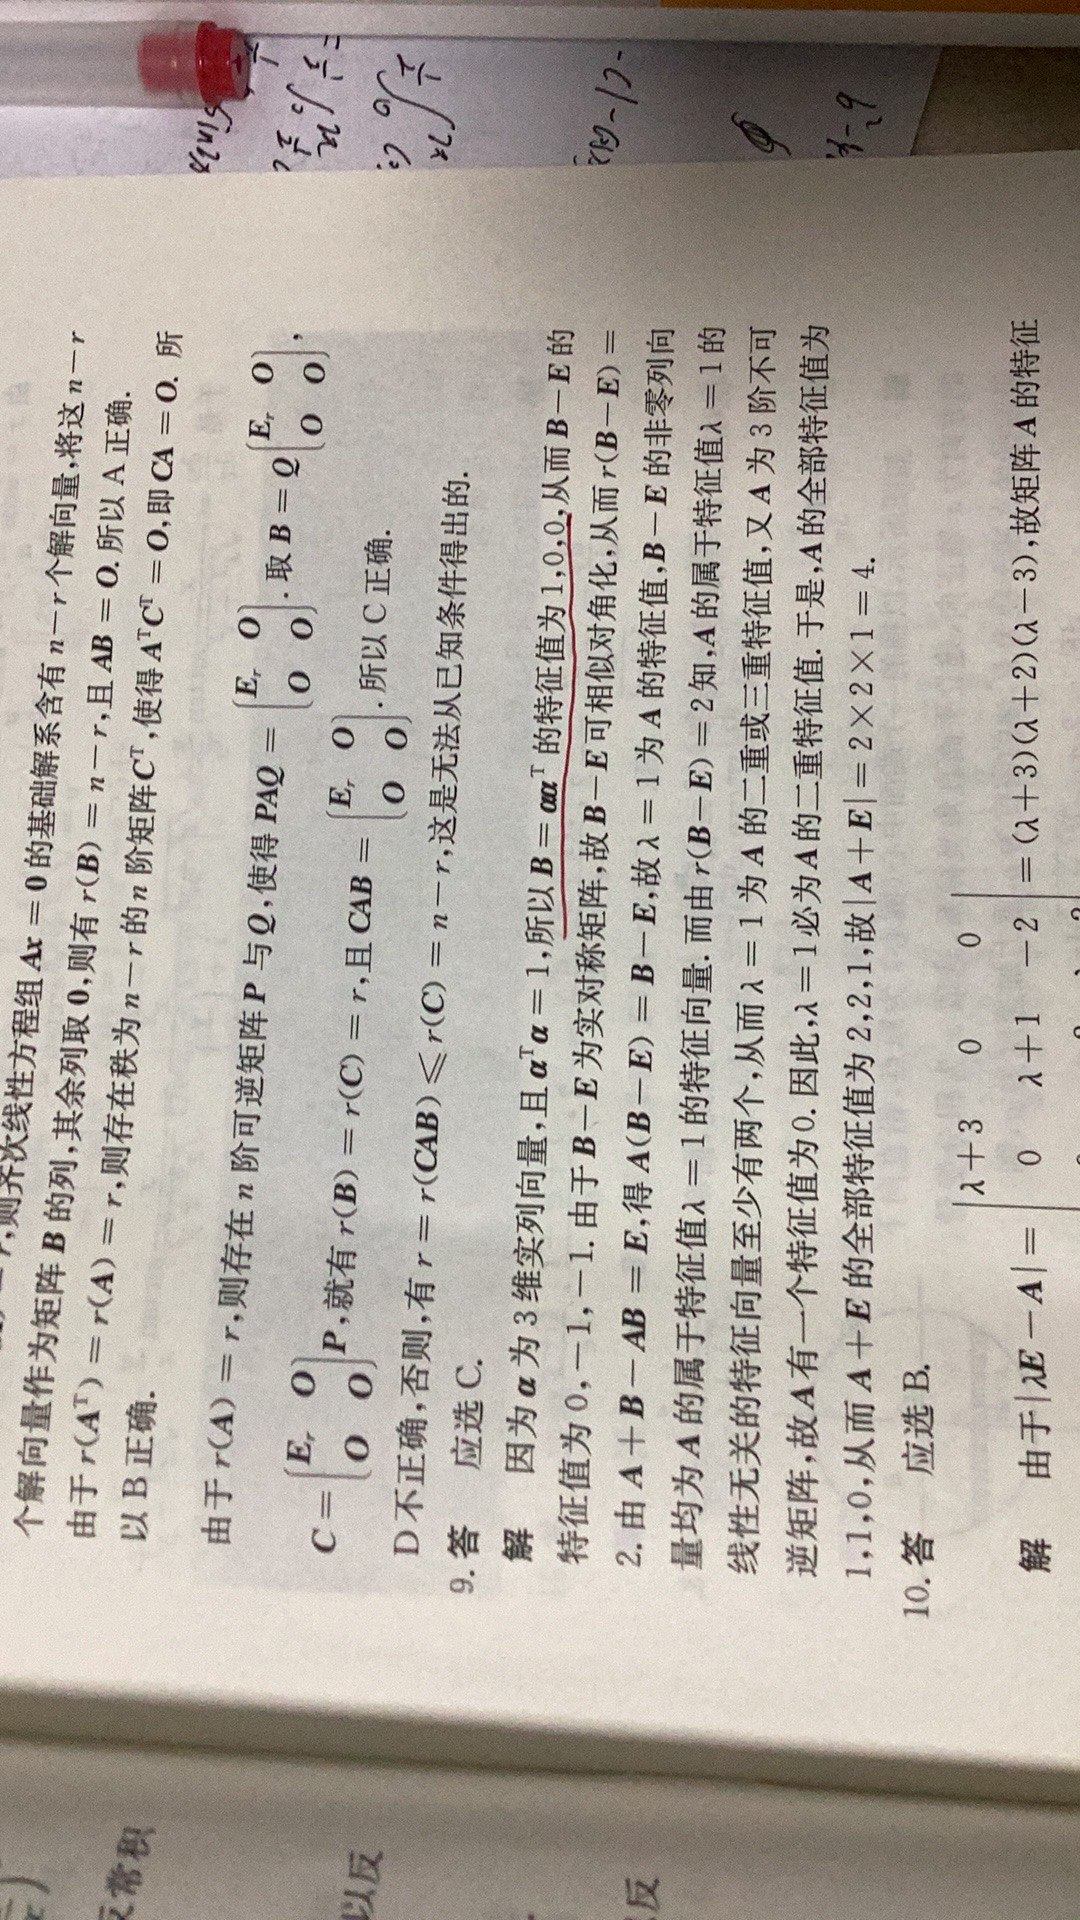 则齐次线性方程组 Ax = 0 的基础解系含有 n－r 个解向量,将这 n－r
个解向量作为矩阵 B 的列,其余列取 0,则有 r(B) = n－r,且 AB = O. 所以 A 正确.
由于 r(Aᵀ) = r(A) = r,则存在秩为 n－r 的 n 阶矩阵 Cᵀ,使得 AᵀCᵀ = O,即 CA = O. 所
以 B 正确.
由于 r(A) = r,则存在 n 阶可逆矩阵 P 与 Q,使得 PAQ = [Eᵣ O; O O]. 取 B = Q[Eᵣ O; O O],
C = [Eᵣ O; O O]P,就有 r(B) = r(C) = r,且 CAB = [Eᵣ O; O O]. 所以 C 正确.
D 不正确,否则,有 r = r(CAB) ⩽ r(C) = n－r,这是无法从已知条件得出的.
9. 答 应选 C.
解 因为 α 为 3 维实列向量,且 αᵀα = 1,所以 B = ααᵀ 的特征值为 1,0,0,从而 B－E 的
特征值为 0,－1,－1. 由于 B－E 为实对称矩阵,故 B－E 可相似对角化,从而 r(B－E) =
2. 由 A＋B－AB = E,得 A(B－E) = B－E,故 λ = 1 为 A 的特征值,B－E 的非零列向
量均为 A 的属于特征值 λ = 1 的特征向量. 而由 r(B－E) = 2 知,A 的属于特征值 λ = 1 的
线性无关的特征向量至少有两个,从而 λ = 1 为 A 的二重或三重特征值,又 A 为 3 阶不可
逆矩阵,故 A 有一个特征值为 0. 因此,λ = 1 必为 A 的二重特征值. 于是,A 的全部特征值为
1,1,0,从而 A＋E 的全部特征值为 2,2,1,故 |A＋E| = 2×2×1 = 4.
10. 答 应选 B.
λ＋3 0 0
解 由于 |λE－A| = 0 λ＋1 －2 = (λ＋3)(λ＋2)(λ－3),故矩阵 A 的特征
常积
以反
反